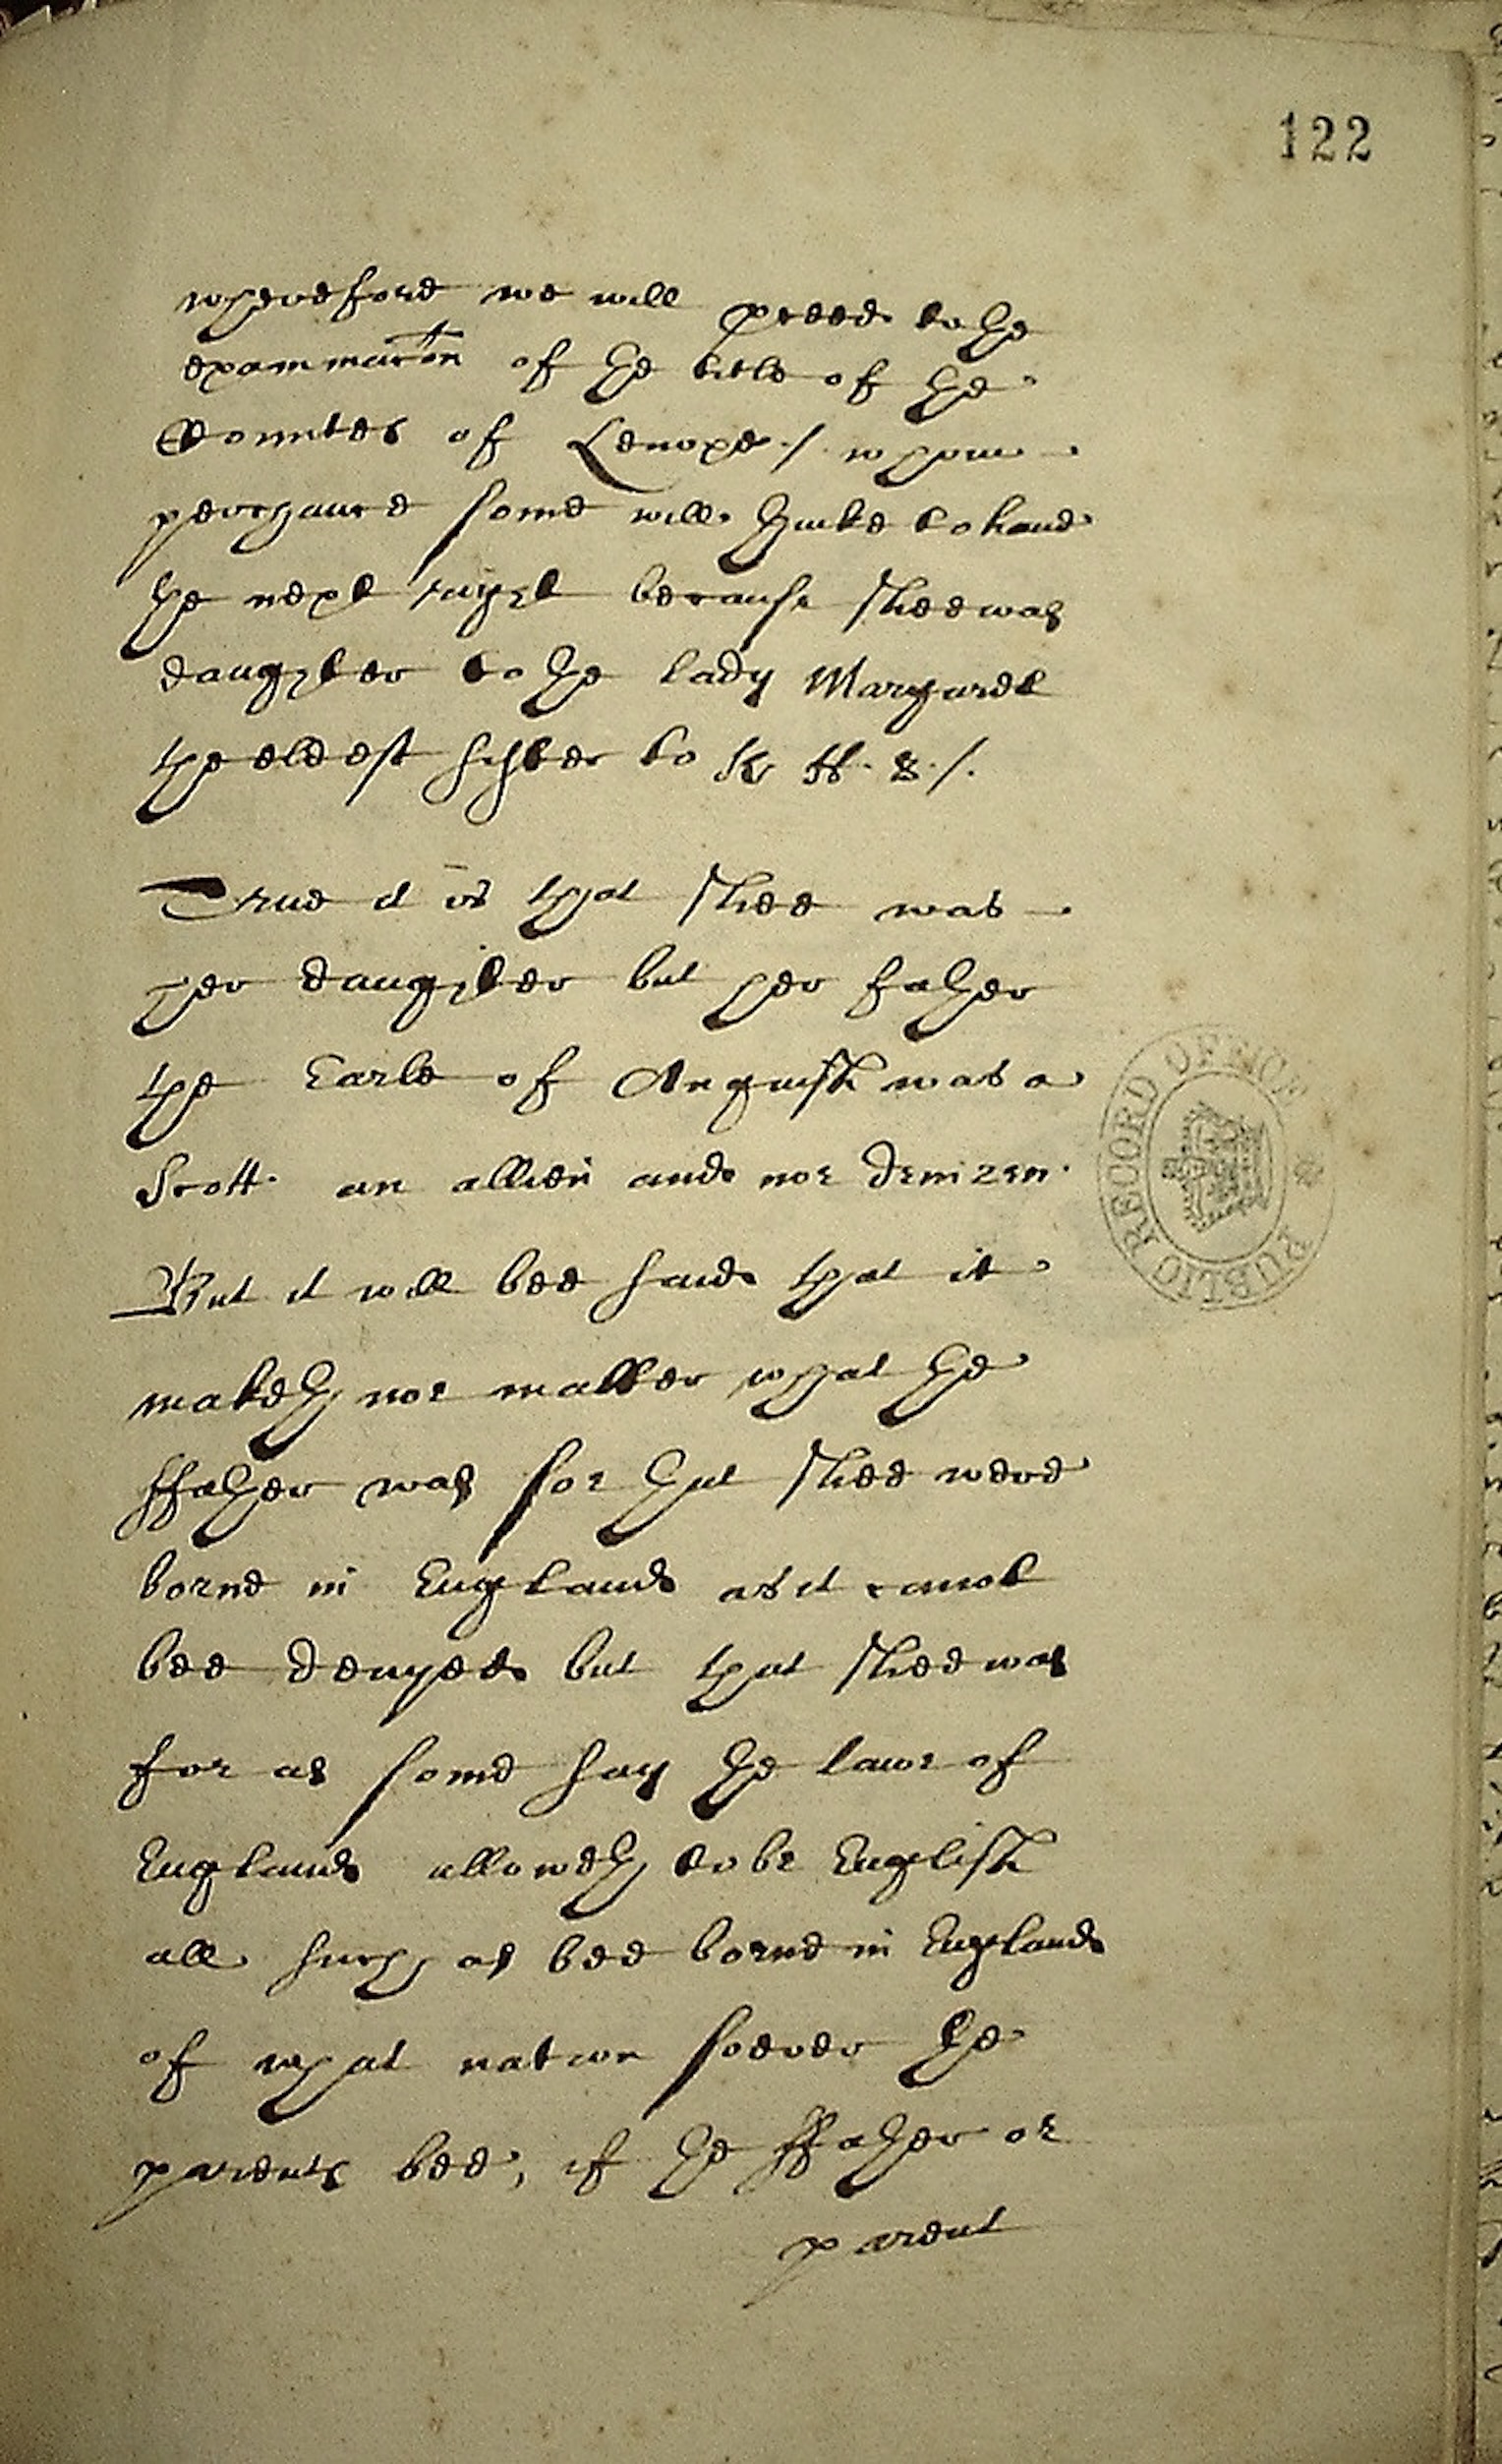 122
wherefore we will pceed to the
examinacon of the title of the
Countes of Lenoxe ./ whom
perchance some will thinke to haue
the next right because shee was
daughter to the lady Margaret
the eldest sister to K H. 8 ./.
True it is that shee was
her daughter but her father
the Earle of Anguish was a
Scott an allien and noe denizen.
But it will bee said that it
maketh noe matter what the
ffather was for that shee were
borne in England as it canot
bee denyed but that shee was
for as some say the lawe of
England alloweth to be English
all such as bee borne in England
of what nation soever the
parents bee, if the ffather or
parent
PUBLIC RECORD OFFICE